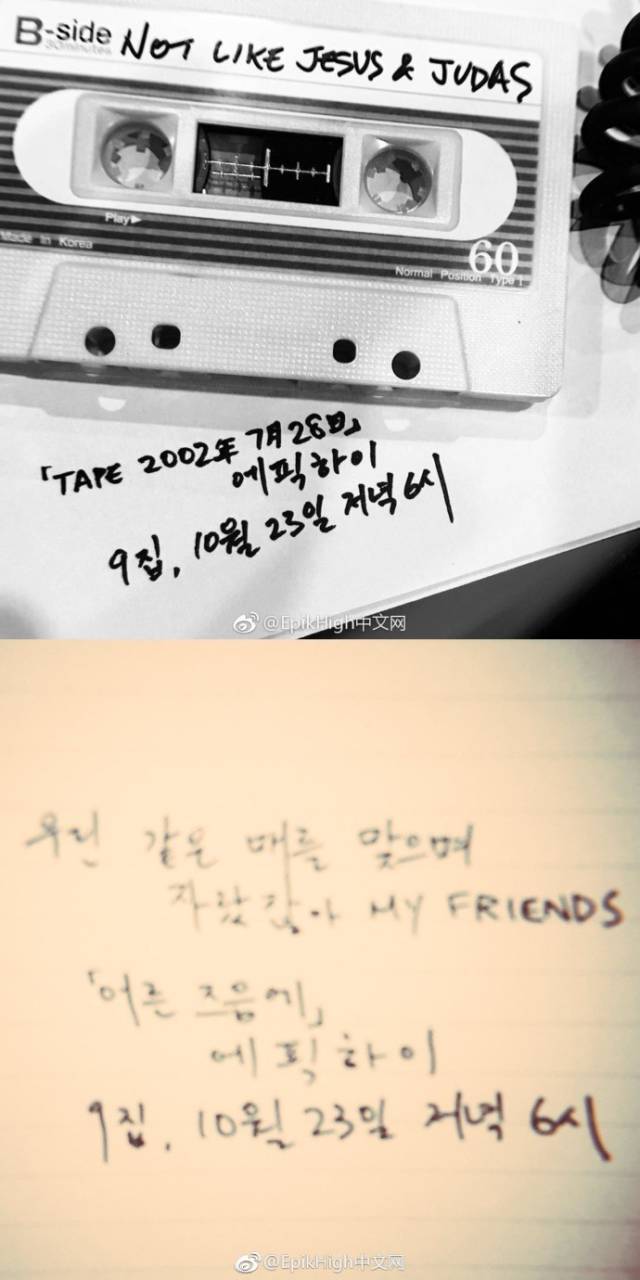 B-side NOT LIKE JESUS & JUDAS
30minutes
Play▶
Made in Korea
60
Normal Position Type I
「TAPE 2002年 7月 28日」
에픽하이
9집, 10월 23일 저녁 6시
@EpikHigh中文网
우린 같은 매를 맞으며
자랐잖아 MY FRIENDS
「어른 즈음에」
에픽하이
9집, 10월 23일 저녁 6시
@EpikHigh中文网